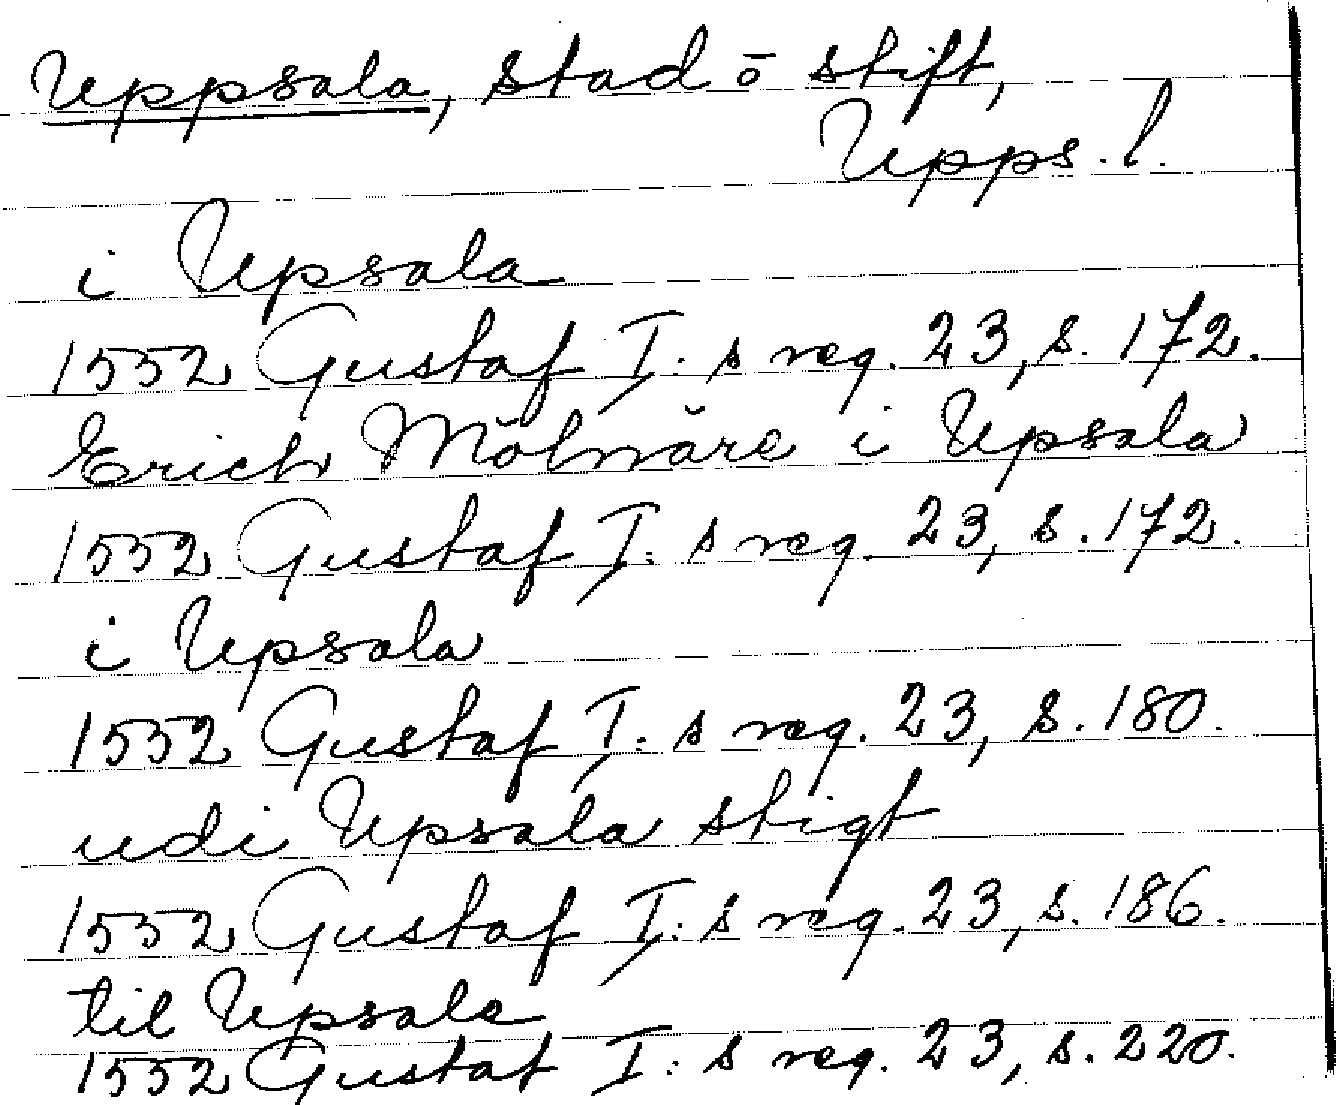 Uppsala, stad ō stift,
Upps. l.
i Upsala
1552 Gustaf I: s reg. 23, s. 172.
Erich Mölnäre i Upsala
1552 Gustaf I: s reg. 23, s. 172.
i Upsala
1552 Gustaf I: s reg. 23, s. 180.
udi Upsala stigt
1552 Gustaf I: s reg. 23, s. 186.
til Upsala
1552 Gustaf I: s reg. 23, s. 220.